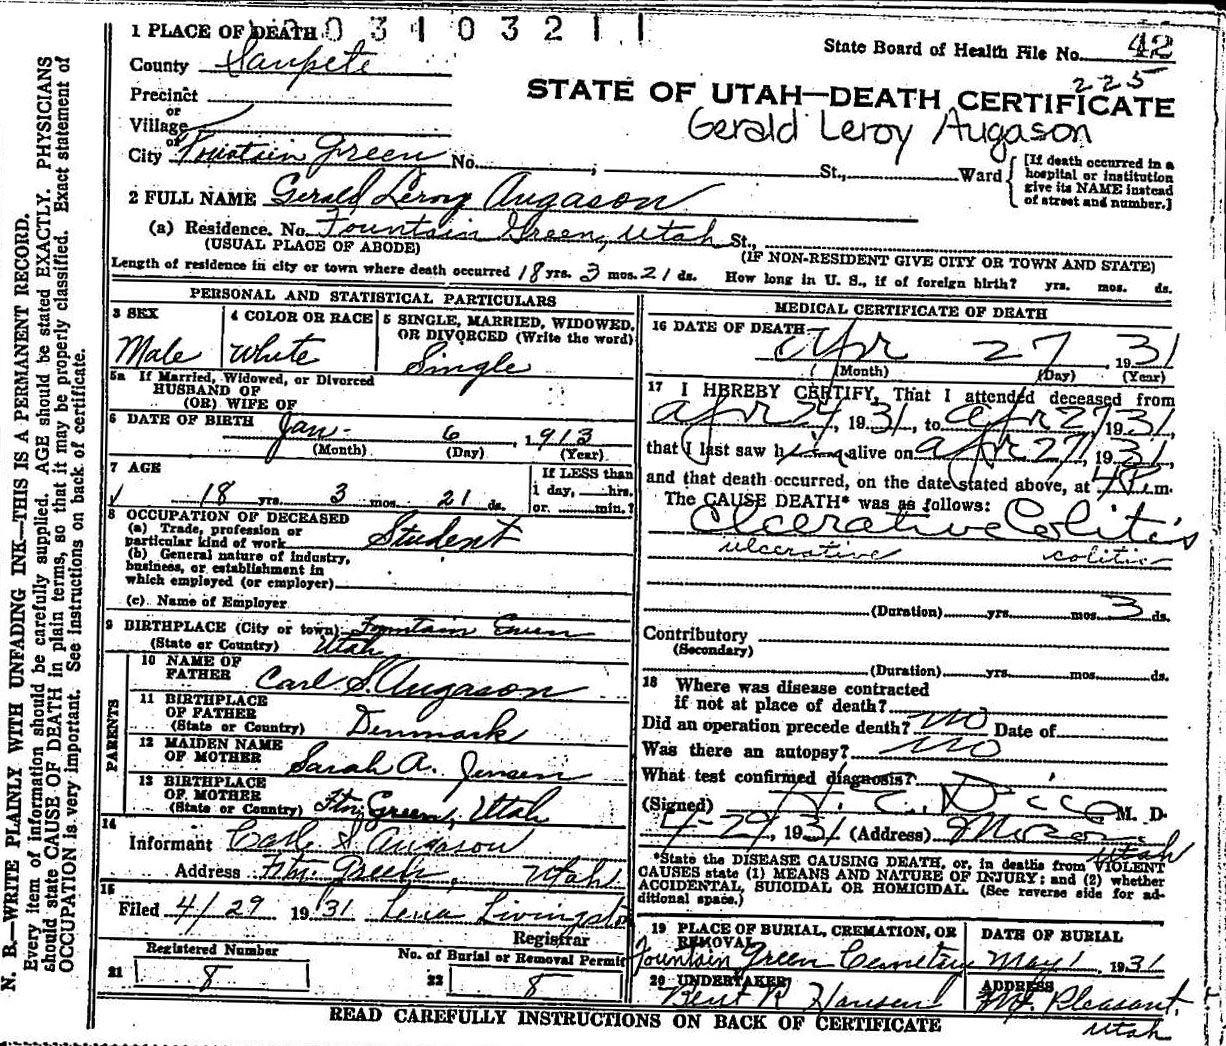 1 PLACE OF DEATH
0 3 1 0 3 2 1 1
State Board of Health File No. 42
225
County Sanpete
STATE OF UTAH—DEATH CERTIFICATE
Gerald Leroy Augason
Precinct
or
Village
or
City Fountain Green No. ; St., Ward
[If death occurred in a
hospital or institution
give its NAME instead
of street and number.]
2 FULL NAME Gerald Leroy Augason
(a) Residence. No. Fountain Green, Utah St.,
(USUAL PLACE OF ABODE)
(IF NON-RESIDENT GIVE CITY OR TOWN AND STATE)
Length of residence in city or town where death occurred 18 yrs. 3 mos. 21 ds. How long in U. S., if of foreign birth? yrs. mos. ds.
PERSONAL AND STATISTICAL PARTICULARS
3 SEX
Male
4 COLOR OR RACE
White
5 SINGLE, MARRIED, WIDOWED,
OR DIVORCED (Write the word)
Single
5a If Married, Widowed, or Divorced
HUSBAND OF
(OR) WIFE OF
6 DATE OF BIRTH
Jan. 6, 1913
(Month) (Day) (Year)
7 AGE
18 yrs. 3 mos. 21 ds.
If LESS than
1 day, hrs.
or min.?
8 OCCUPATION OF DECEASED
(a) Trade, profession or
particular kind of work Student
(b) General nature of industry,
business, or establishment in
which employed (or employer)
(c) Name of Employer
9 BIRTHPLACE (City or town) Fountain Green
(State or Country) Utah
PARENTS
10 NAME OF
FATHER Carl S. Augason
11 BIRTHPLACE
OF FATHER
(State or Country) Denmark
12 MAIDEN NAME
OF MOTHER Sarah A. Jensen
13 BIRTHPLACE
OF MOTHER
(State or Country) Ftn. Green, Utah
14
Informant Carl S Augason
Address Ftn. Green, Utah
15
Filed 4/29 1931 Lena Livingston
Registrar
Registered Number
21 8
No. of Burial or Removal Permit
22 8
MEDICAL CERTIFICATE OF DEATH
16 DATE OF DEATH
Apr 27, 1931
(Month) (Day) (Year)
17 I HEREBY CERTIFY, That I attended deceased from
Apr 24, 1931, to Apr 27, 1931,
that I last saw him alive on Apr 27, 1931,
and that death occurred, on the date stated above, at 4 P. m.
The CAUSE DEATH* was as follows:
Ulcerative Colitis
ulcerative colitis
(Duration) yrs. mos. 3 ds.
Contributory
(Secondary)
(Duration) yrs. mos. ds.
18 Where was disease contracted
if not at place of death?
Did an operation precede death? No Date of
Was there an autopsy? No
What test confirmed diagnosis?
(Signed) M. D.
4-29, 1931 (Address) Moroni
Utah
*State the DISEASE CAUSING DEATH, or, in deaths from VIOLENT
CAUSES state (1) MEANS AND NATURE OF INJURY; and (2) whether
ACCIDENTAL, SUICIDAL OR HOMICIDAL. (See reverse side for ad-
ditional space.)
19 PLACE OF BURIAL, CREMATION, OR
REMOVAL
Fountain Green Cemetery
DATE OF BURIAL
May 1, 1931
20 UNDERTAKER
Bent R Hansen
ADDRESS
Mt. Pleasant,
Utah
READ CAREFULLY INSTRUCTIONS ON BACK OF CERTIFICATE
N. B.—WRITE PLAINLY WITH UNFADING INK—THIS IS A PERMANENT RECORD.
Every item of information should be carefully supplied. AGE should be stated EXACTLY. PHYSICIANS
should state CAUSE OF DEATH in plain terms, so that it may be properly classified. Exact statement of
OCCUPATION is very important. See instructions on back of certificate.